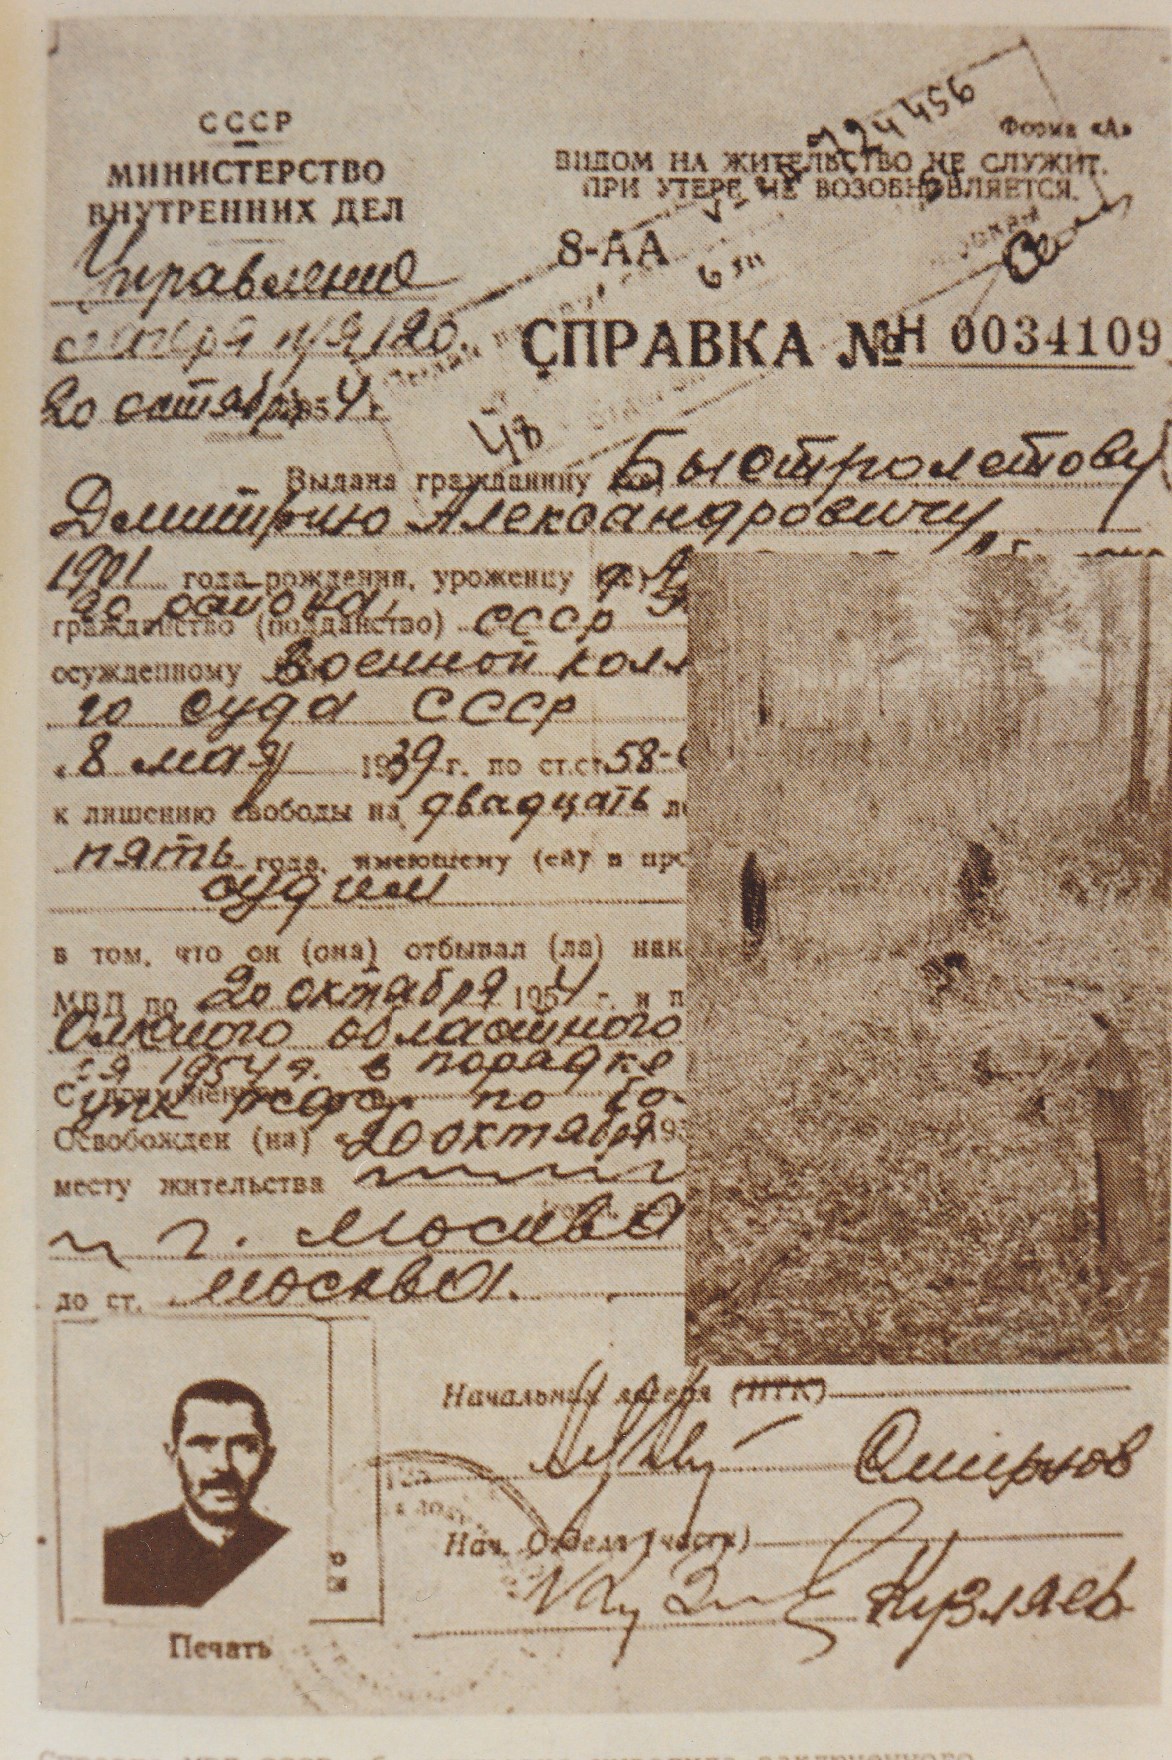 СССР
МИНИСТЕРСТВО
ВНУТРЕННИХ ДЕЛ
Управление
п/я 120.
20 октября 1954 г.
Форма «А»
ВИДОМ НА ЖИТЕЛЬСТВО НЕ СЛУЖИТ.
ПРИ УТЕРЕ НЕ ВОЗОБНОВЛЯЕТСЯ.
724456
8-АА
СПРАВКА № Н 0034109
48
Выдана гражданину Быстролетову
Дмитрию Александровичу
1901 года рождения, уроженцу
го района,
гражданство (подданство) СССР
осужденному Военной колл
го суда СССР
"8 мая 1939 г. по ст.ст. 58-6
к лишению свободы на двадцать ле
пять года, имеющему (ей) в про
судим
в том, что он (она) отбывал (ла) нак
МВД по 20 октября 1954 г. и п
Омского областного
1954 г. в порядке
УПК по
Освобожден (на) «20 октября 195
месту жительства
г. Москва
до ст. Москва.
Начальник лагеря (ИТК)
Смирнов
Нач. Отдела (части)
Кузляев
Печать